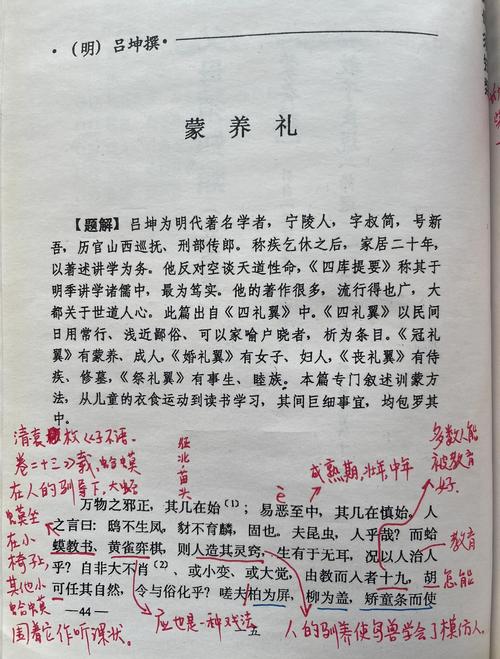 ·（明）吕坤撰·
蒙养礼
【题解】吕坤为明代著名学者，宁陵人，字叔简，号新
吾，历官山西巡抚、刑部传郎。称疾乞休之后，家居二十年，
以著述讲学为务。他反对空谈天道性命，《四库提要》称其于
明季讲学诸儒中，最为笃实。他的著作很多，流行得也广，大
都关于世道人心。此篇出自《四礼翼》中。《四礼翼》以民间
日用常行、浅近鄙俗、可以家喻户晓者，析为条目。《冠礼
翼》有蒙养、成人，《婚礼翼》有女子、妇人，《丧礼翼》有侍
疾、修墓，《祭礼翼》有事生、睦族。本篇专门叙述训蒙方
法，从儿童的衣食运动到读书学习，其间巨细事宜，均包罗其
中。
清袁枚《子不语
卷二十三》载，蛤蟆
在人的驯导下，大蛤
蟆坐
在小
椅子上，
其他小
蛤蟆
围着它作听课状。
征兆苗头
è
成熟期，壮年，中年
多数人能
被教育
好。
万物之邪正，其几在始⑴；易恶至中，其几在慎始。人
之言曰：鸱不生凤，豺不育麟，固也。夫昆虫，人乎哉？而蛤
蟆教书、黄雀弈棋，则人造其灵窍，生有于无耳，况以人治人
乎？自非大不肖⑵、或小变、或大觉，由教而入者十九，胡
可任其自然，令与俗化乎？嗟夫柏为屏，柳为盖，矫童条而使
教育
怎能
—44—
应也是一种戏法
人的驯养使鸟兽学会了模仿人。